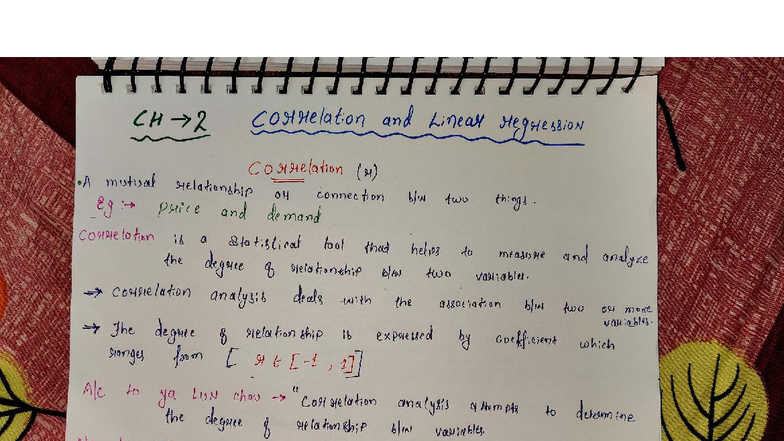 CH → 2 Correlation and Linear regression
Correlation (r)
• A mutual relationship or connection b/w two things.
Eg :→ Price and demand
Correlation is a statistical tool that helps to measure and analyze
the degree of relationship b/w two variables.
⇒ correlation analysis deals with the association b/w two or more
variables.
⇒ The degree of relationship is expressed by coefficient which
ranges from [ r ∈ [-1 , 1]]
A/c to ya Lun chou → "Correlation analysis attempts to determine
the degree of relationship b/w variables.